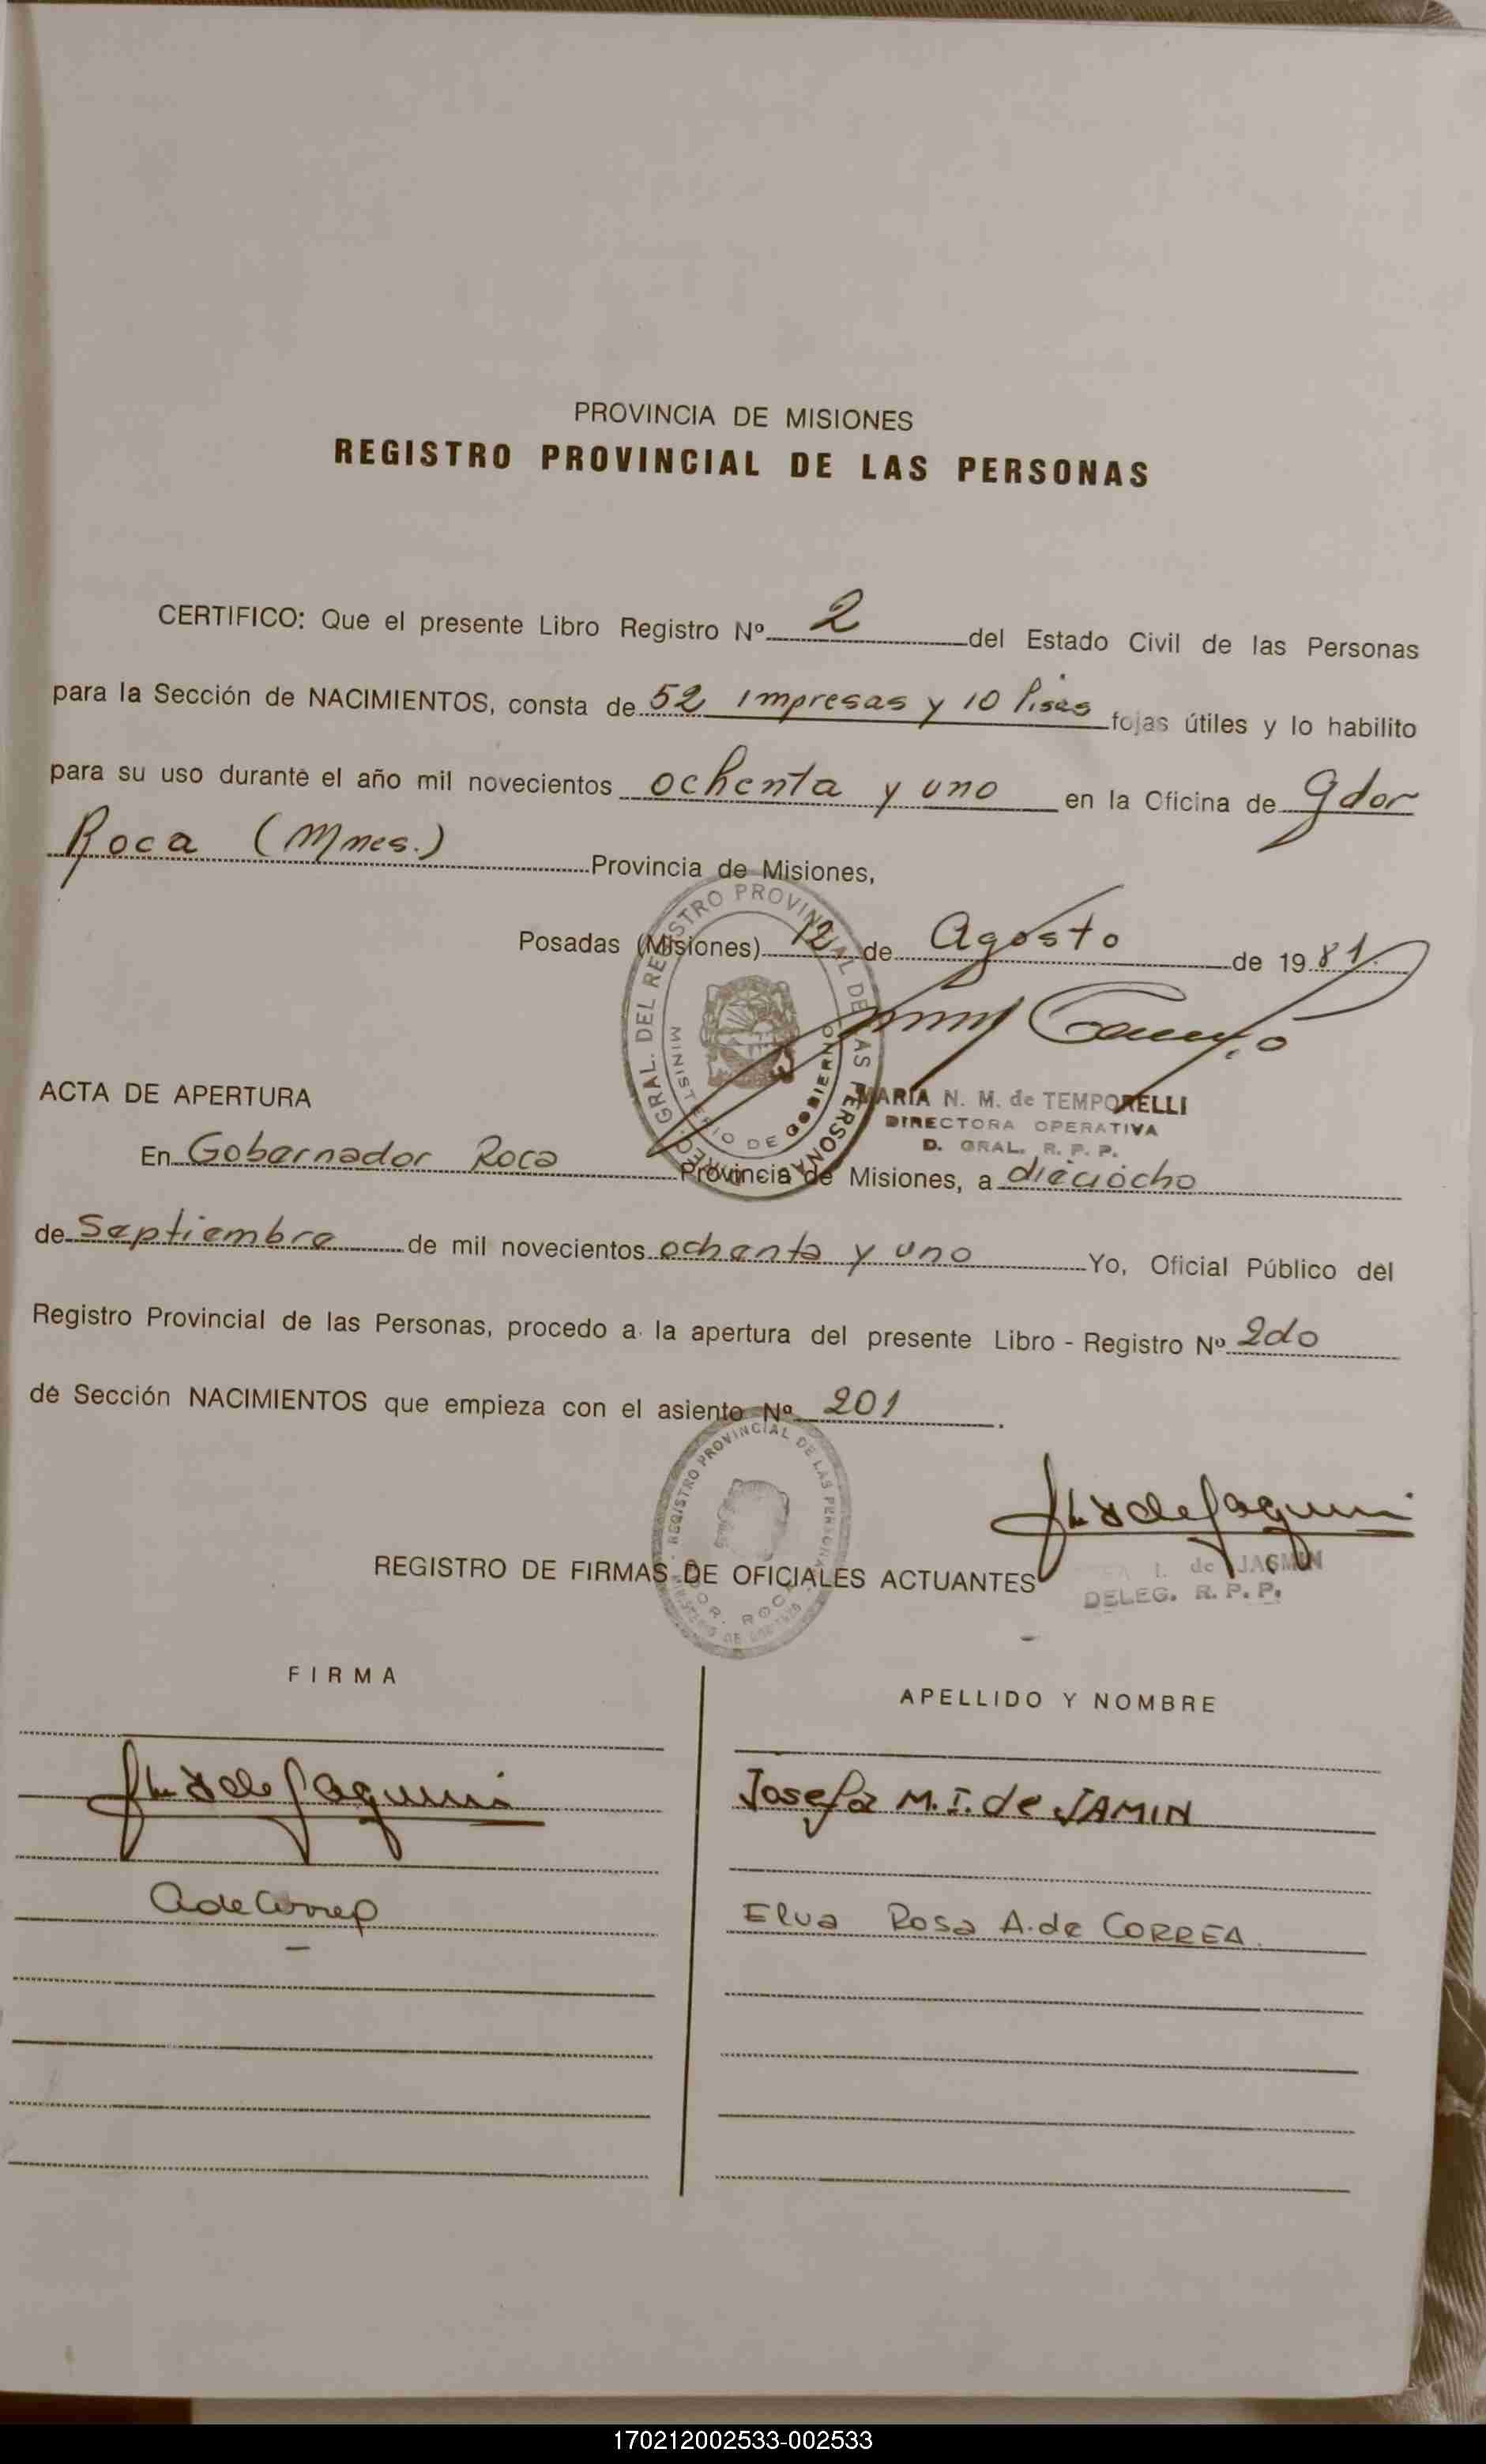 PROVINCIA DE MISIONES
REGISTRO PROVINCIAL DE LAS PERSONAS
CERTIFICO: Que el presente Libro Registro Nº 2 del Estado Civil de las Personas
para la Sección de NACIMIENTOS, consta de 52 Impresas y 10 lisas fojas útiles y lo habilito
para su uso durante el año mil novecientos ochenta y uno en la Oficina de Gdor
Roca (Mnes.) Provincia de Misiones,
Posadas (Misiones) 12 de Agosto de 1981.
DIREC. GRAL. DEL REGISTRO PROVINCIAL DE LAS PERSONAS
MINISTERIO DE GOBIERNO
MARIA N. M. de TEMPORELLI
DIRECTORA OPERATIVA
D. GRAL. R. P. P.
ACTA DE APERTURA
En Gobernador Roca Provincia de Misiones, a dieciocho
de Septiembre de mil novecientos ochenta y uno Yo, Oficial Público del
Registro Provincial de las Personas, procedo a la apertura del presente Libro - Registro Nº 2do
de Sección NACIMIENTOS que empieza con el asiento Nº 201.
REGISTRO PROVINCIAL DE LAS PERSONAS
GDOR. ROCA
MINISTERIO DE GOBIERNO
I. de JASMIN
DELEG. R. P. P.
REGISTRO DE FIRMAS DE OFICIALES ACTUANTES
FIRMA
APELLIDO Y NOMBRE
Josefa M.I. de JAMIN
AdeCorrea
Elva Rosa A. de CORREA.
170212002533-002533